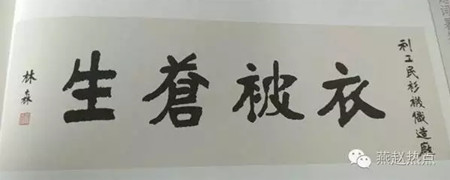 利工民衫襪織造廠
衣被蒼生
林森
燕赵热点